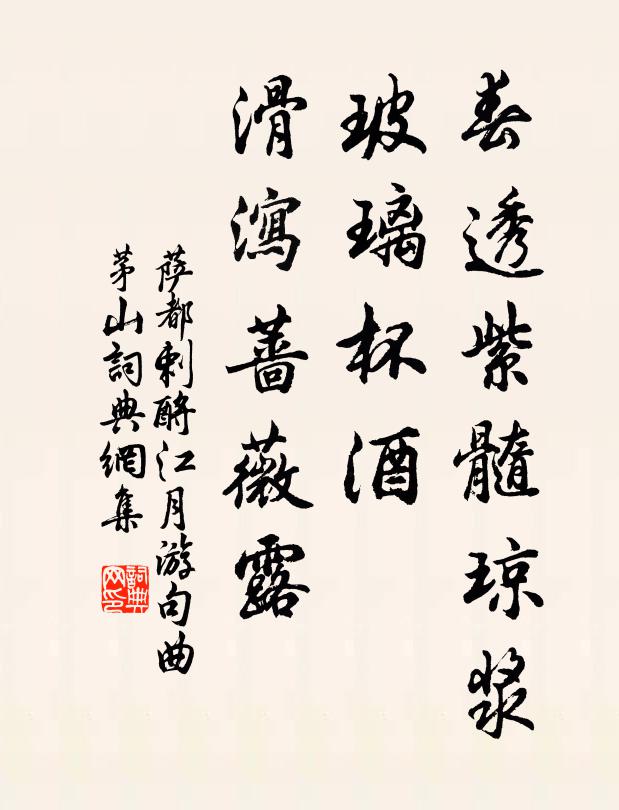 春透紫髓琼浆
玻璃杯酒
滑瀉蔷薇露
萨都剌酹江月游句曲
茅山詞典網集
詞典
网印